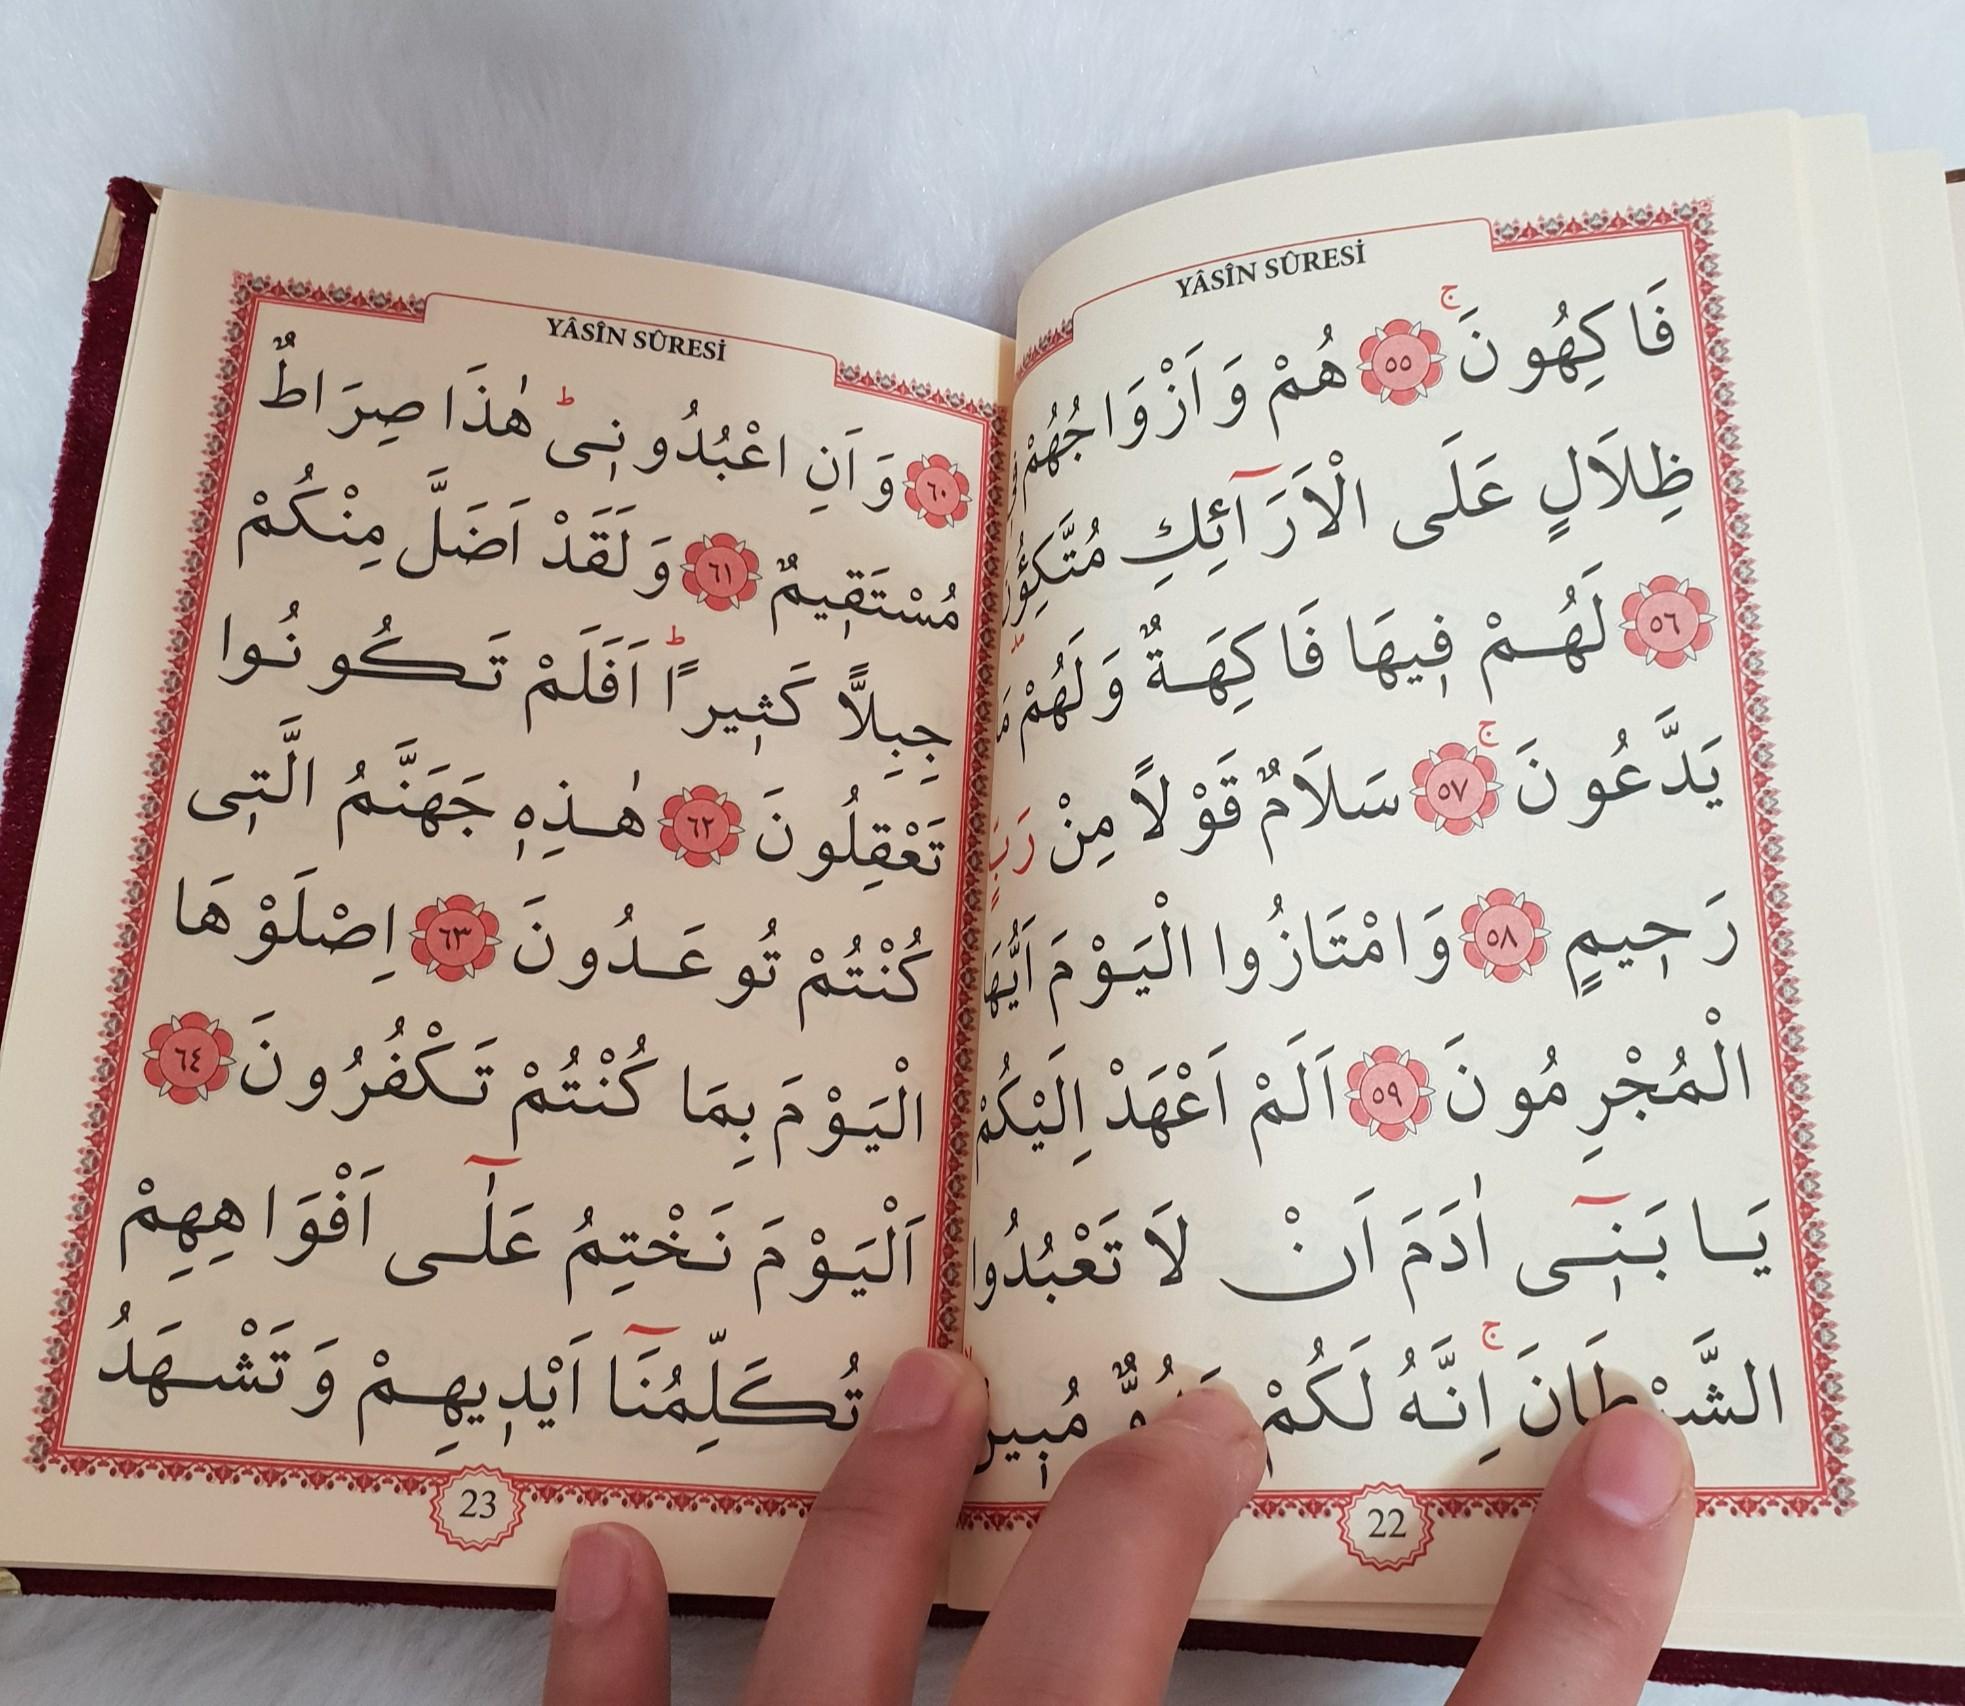 YÂSÎN SÛRESİ
فَاكِهُونَ ۚ ﴿٥٥﴾ هُمْ وَاَزْوَاجُهُمْ
ظِلَالٍ عَلَى الْاَرَٓائِكِ مُتَّكِؤُ۫نَ
﴿٥٦﴾ لَهُمْ ف۪يهَا فَاكِهَةٌ وَلَهُمْ
يَدَّعُونَ ۚ ﴿٥٧﴾ سَلَامٌ قَوْلًا مِنْ رَبٍّ
رَح۪يمٍ ﴿٥٨﴾ وَامْتَازُوا الْيَوْمَ اَيُّهَا
الْمُجْرِمُونَ ﴿٥٩﴾ اَلَمْ اَعْهَدْ اِلَيْكُمْ
يَا بَن۪ٓى اٰدَمَ اَنْ لَا تَعْبُدُوا
الشَّيْطَانَ ۚ اِنَّهُ لَكُمْ عَدُوٌّ مُب۪ينٌ
22
YÂSÎN SÛRESİ
﴿٦٠﴾ وَاَنِ اعْبُدُون۪ى ۜ هٰذَا صِرَاطٌ
مُسْتَق۪يمٌ ﴿٦١﴾ وَلَقَدْ اَضَلَّ مِنْكُمْ
جِبِلًّا كَث۪يرًا ۜ اَفَلَمْ تَكُونُوا
تَعْقِلُونَ ﴿٦٢﴾ هٰذِه۪ جَهَنَّمُ الَّت۪ى
كُنْتُمْ تُوعَدُونَ ﴿٦٣﴾ اِصْلَوْهَا
الْيَوْمَ بِمَا كُنْتُمْ تَكْفُرُونَ ﴿٦٤﴾
اَلْيَوْمَ نَخْتِمُ عَلٰٓى اَفْوَاهِهِمْ
تُكَلِّمُنَٓا اَيْد۪يهِمْ وَتَشْهَدُ
23